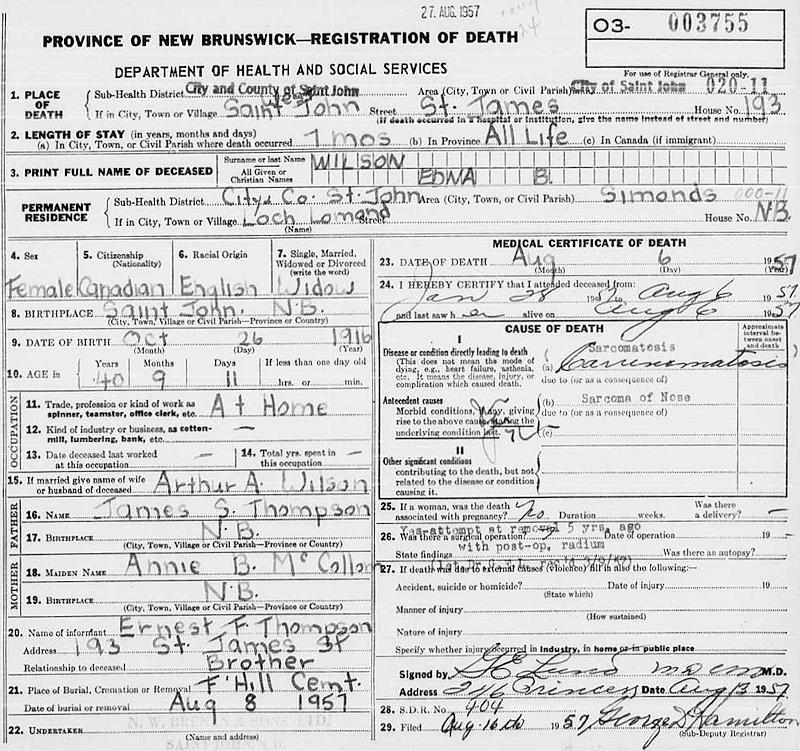 27. AUG. 1957
PROVINCE OF NEW BRUNSWICK—REGISTRATION OF DEATH
O3- 003755
For use of Registrar General only.
DEPARTMENT OF HEALTH AND SOCIAL SERVICES
1. PLACE OF DEATH
Sub-Health District City and County of Saint John Area (City, Town or Civil Parish) City of Saint John 020-11
If in City, Town or Village Saint John West Street St. James House No. 193
(If death occurred in a hospital or institution, give name instead of street and number)
2. LENGTH OF STAY (in years, months and days)
(a) In City, Town, or Civil Parish where death occurred 7 mos (b) In Province All Life (c) In Canada (if immigrant)
3. PRINT FULL NAME OF DECEASED
Surname or last Name WILSON
All Given or Christian Names EDNA B.
PERMANENT RESIDENCE
Sub-Health District City & Co. St. John Area (City, Town, or Civil Parish) Simonds 000-11
If in City, Town or Village Loch Lomond Street House No. N.B.
(Name)
4. Sex Female
5. Citizenship (Nationality) Canadian
6. Racial Origin English
7. Single, Married, Widowed or Divorced (write the word) Widow
8. BIRTHPLACE Saint John, N.B.
(City, Town, Village or Civil Parish—Province or Country)
9. DATE OF BIRTH Oct 26 1916
(Month) (Day) (Year)
10. AGE in Years Months Days If less than one day old
40 9 11 hrs. or min.
OCCUPATION
11. Trade, profession or kind of work as spinner, teamster, office clerk, etc. At Home
12. Kind of industry or business, as cotton-mill, lumbering, bank, etc. —
13. Date deceased last worked at this occupation —
14. Total yrs. spent in this occupation —
15. If married give name of wife or husband of deceased Arthur A. Wilson
FATHER
16. NAME James S. Thompson
17. BIRTHPLACE N.B.
(City, Town, Village or Civil Parish—Province or Country)
MOTHER
18. MAIDEN NAME Annie B. McCollom
19. BIRTHPLACE N.B.
(City, Town, Village or Civil Parish—Province or Country)
20. Name of informant Ernest F Thompson
Address 193 St. James St
Relationship to deceased Brother
21. Place of Burial, Cremation or Removal F'Hill Cemt.
Date of burial or removal Aug 8 1957
22. UNDERTAKER N. W. & SONS LTD.
(Name and address)
SAINT JOHN, N. B.
MEDICAL CERTIFICATE OF DEATH
23. DATE OF DEATH Aug 6 1957
(Month) (Day) (Year)
24. I HEREBY CERTIFY that I attended deceased from:
Jan 28 1957 to Aug 6 1957
and last saw her alive on Aug 6 1957
CAUSE OF DEATH
Approximate interval between onset and death
I
Disease or condition directly leading to death
(This does not mean the mode of dying, e.g., heart failure, asthenia, etc. It means the disease, injury, or complication which caused death.
Sarcomatosis
(a) Carcinomatosis
due to (or as a consequence of)
Antecedent causes
Morbid conditions, if any, giving rise to the above cause, stating the underlying condition last.
(b) Sarcoma of Nose
due to (or as a consequence of)
(c)
II
Other significant conditions
contributing to the death, but not related to the disease or condition causing it.
25. If a woman, was the death associated with pregnancy? No Duration weeks. Was there a delivery? —
Yes-attempt at removal 5 yrs. ago
26. Was there a surgical operation? Date of operation 19 -
with post-op. radium
State findings Was there an autopsy?
27. If death was due to external causes (violence) fill in also the following:—
Accident, suicide or homicide? Date of injury 19
(State which)
Manner of injury
(How sustained)
Nature of injury
Specify whether injury occurred in industry, in home or in public place
Signed by M.D.
Address Princess Date Aug 13 1957
28. S.D.R. No. 404
29. Filed Aug. 16th 1957 George D Hamilton
(Sub-Deputy Registrar)